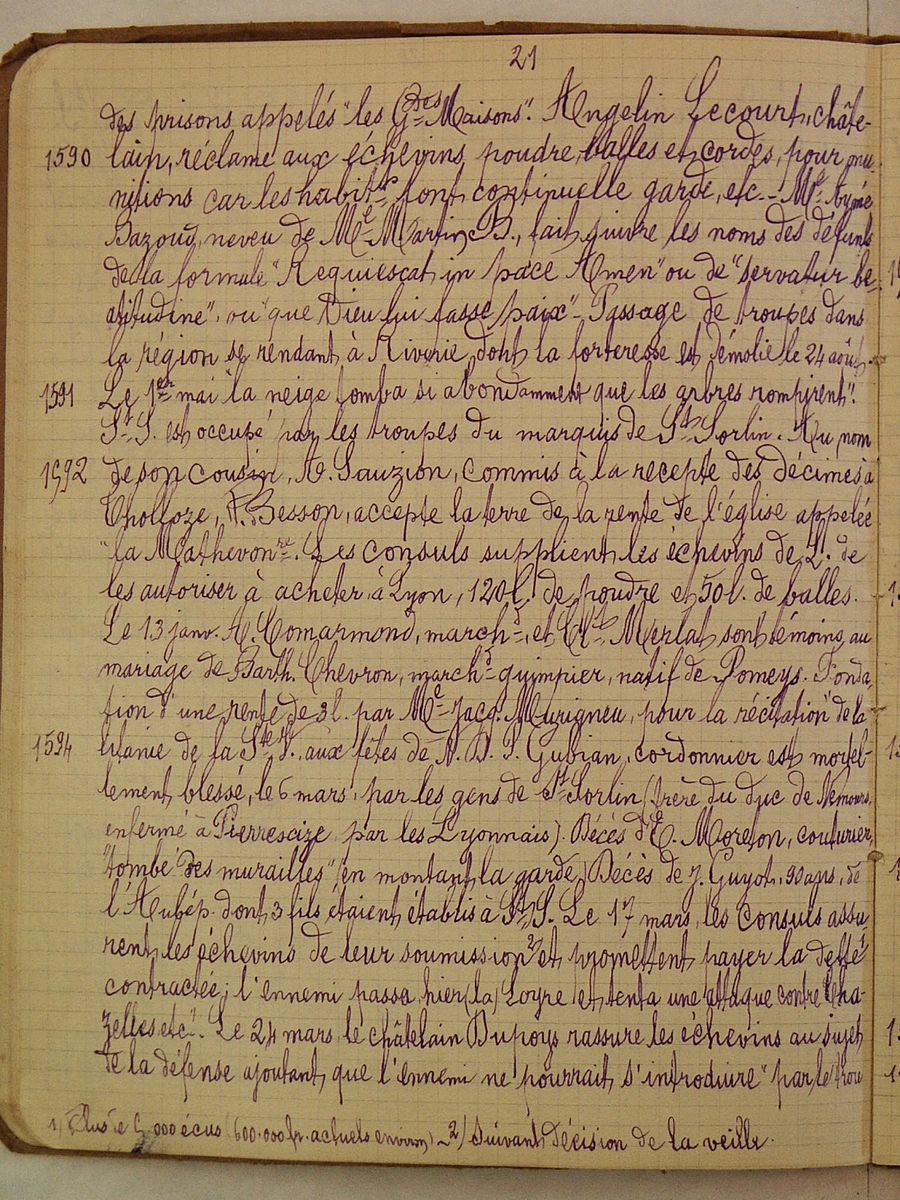 21
des prisons appelés "les Gdes Maisons". Angelin Lecourt, châte-
1590 lain, réclame aux échevins, poudre, balles et cordes, pour mu-
nitions car les habitts font continuelle garde, etc. - Me Aymé
Bazoud, neveu de Me Martin B., fait suivre les noms des défunts
de la formule "Requiescat in pace Amen" ou de "servatur be-
atitudine", ou "que Dieu lui fasse paix" - Passage de troupes dans
la région se rendant à Riverie, dont la forteresse est démolie le 24 août.
1591 Le 1er mai "la neige tomba si abondamment que les arbres rompirent".
St S. est occupé par les troupes du marquis de St Sorlin. Au nom
1592 de son cousin, A. Sauzion, commis à la recepte des décimes à
Cholloze, F. Besson, accepte la terre de la rente de l'église appelée
"la Mathevonre". Les consuls supplient les échevins de L. de
les autoriser à acheter à Lyon, 120 l. de poudre et 50 l. de balles.
Le 13 janv. A. Comarmond, marchd, et Merlat sont témoins au
mariage de Barth. Chevron, marchd guimpier, natif de Pomeys. Fonda-
tion d'une rente de 3 l. par Me Jacq. Murigneu, pour la récitation de la
1594 litanie de la Ste V. aux fêtes de N. D. J. Gubian, cordonnier est mortel-
lement blessé, le 6 mars, par les gens de St Sorlin (frère du duc de Nemours,
enfermé à Pierrescize par les Lyonnais). Décès d'E. Morelon, couturier,
"tombé des murailles" (en montant la garde) Décès de J. Guyot, 90 ans, de
l'Aubép. dont 3 fils étaient établis à St S. Le 17 mars, les consuls assu-
rent les échevins de leur soumission 2) et promettent payer la dette 1)
contractée; l'ennemi passa hier (la) Loyre et tenta une attaque contre Cha-
zelles, etc". Le 24 mars, le châtelain Dupoys rassure les échevins au sujet
de la défense ajoutant que l'ennemi ne pourrait s'introduire "par le trou
1) Plus de 5.000 écus (600.000 fr. actuels environ) - 2) Suivant décision de la veille.